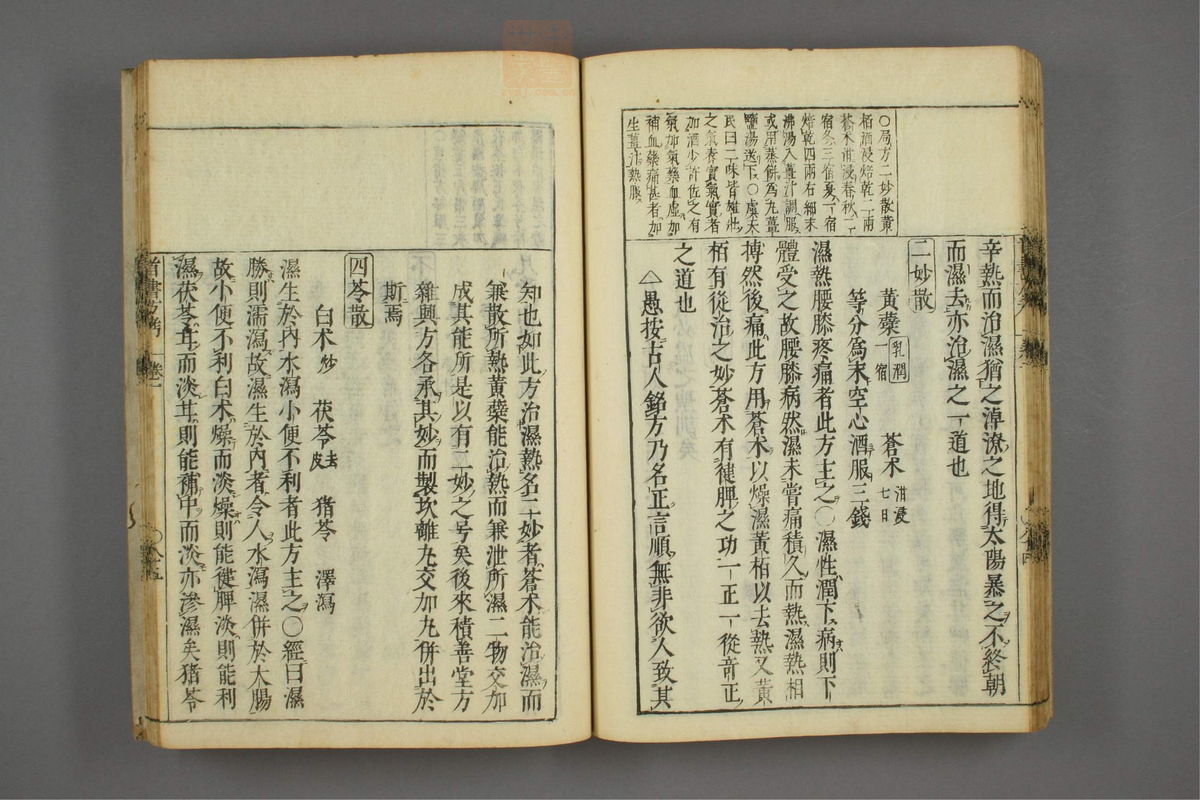 辛熱而治濕猶之淖潦之地得太陽暴之不終朝
而濕去亦治濕之一道也
二妙散
黃蘗乳潤一宿 蒼术泔浸七日
等分爲末空心酒服三錢
濕熱腰膝疼痛者此方主之○濕性潤下病則下
體受之故腰膝病然濕未嘗痛積久而熱濕熱相
搏然後痛此方用蒼术以燥濕黃栢以去熱又黃
栢有從治之妙蒼术有健脾之功一正一從奇正
之道也
△愚按古人銘方乃名正言順無非欲人致其
○局方二妙散黃
栢酒浸焙乾二兩
蒼术泔浸春秋二
宿冬三宿夏一宿
焙乾四兩右細末
沸湯入薑汁調服
或用蒸餅爲丸薑
鹽湯送下○虛末
氏曰二味皆雄壯
之氣春實氣實者
加酒少許佐之有
氣加氣藥血虛加
補血藥痛甚者加
生薑汁熱服
知也如此方治濕熱名二妙者蒼术能治濕而
兼散所熱黃蘗能治熱而兼泄所濕二物交加
成其能所是以有二妙之号矣後來積善堂方
雜興方各承其妙而製坎離丸交加丸併出於
斯焉
四苓散
白术炒 茯苓去皮 猪苓 澤瀉
濕生於內水瀉小便不利者此方主之○經曰濕
勝則濡瀉故濕生於內者令人水瀉濕併於大腸
故小便不利白术燥而淡燥則能健脾淡則能利
濕茯苓甘而淡甘則能補中而淡亦滲濕矣猪苓